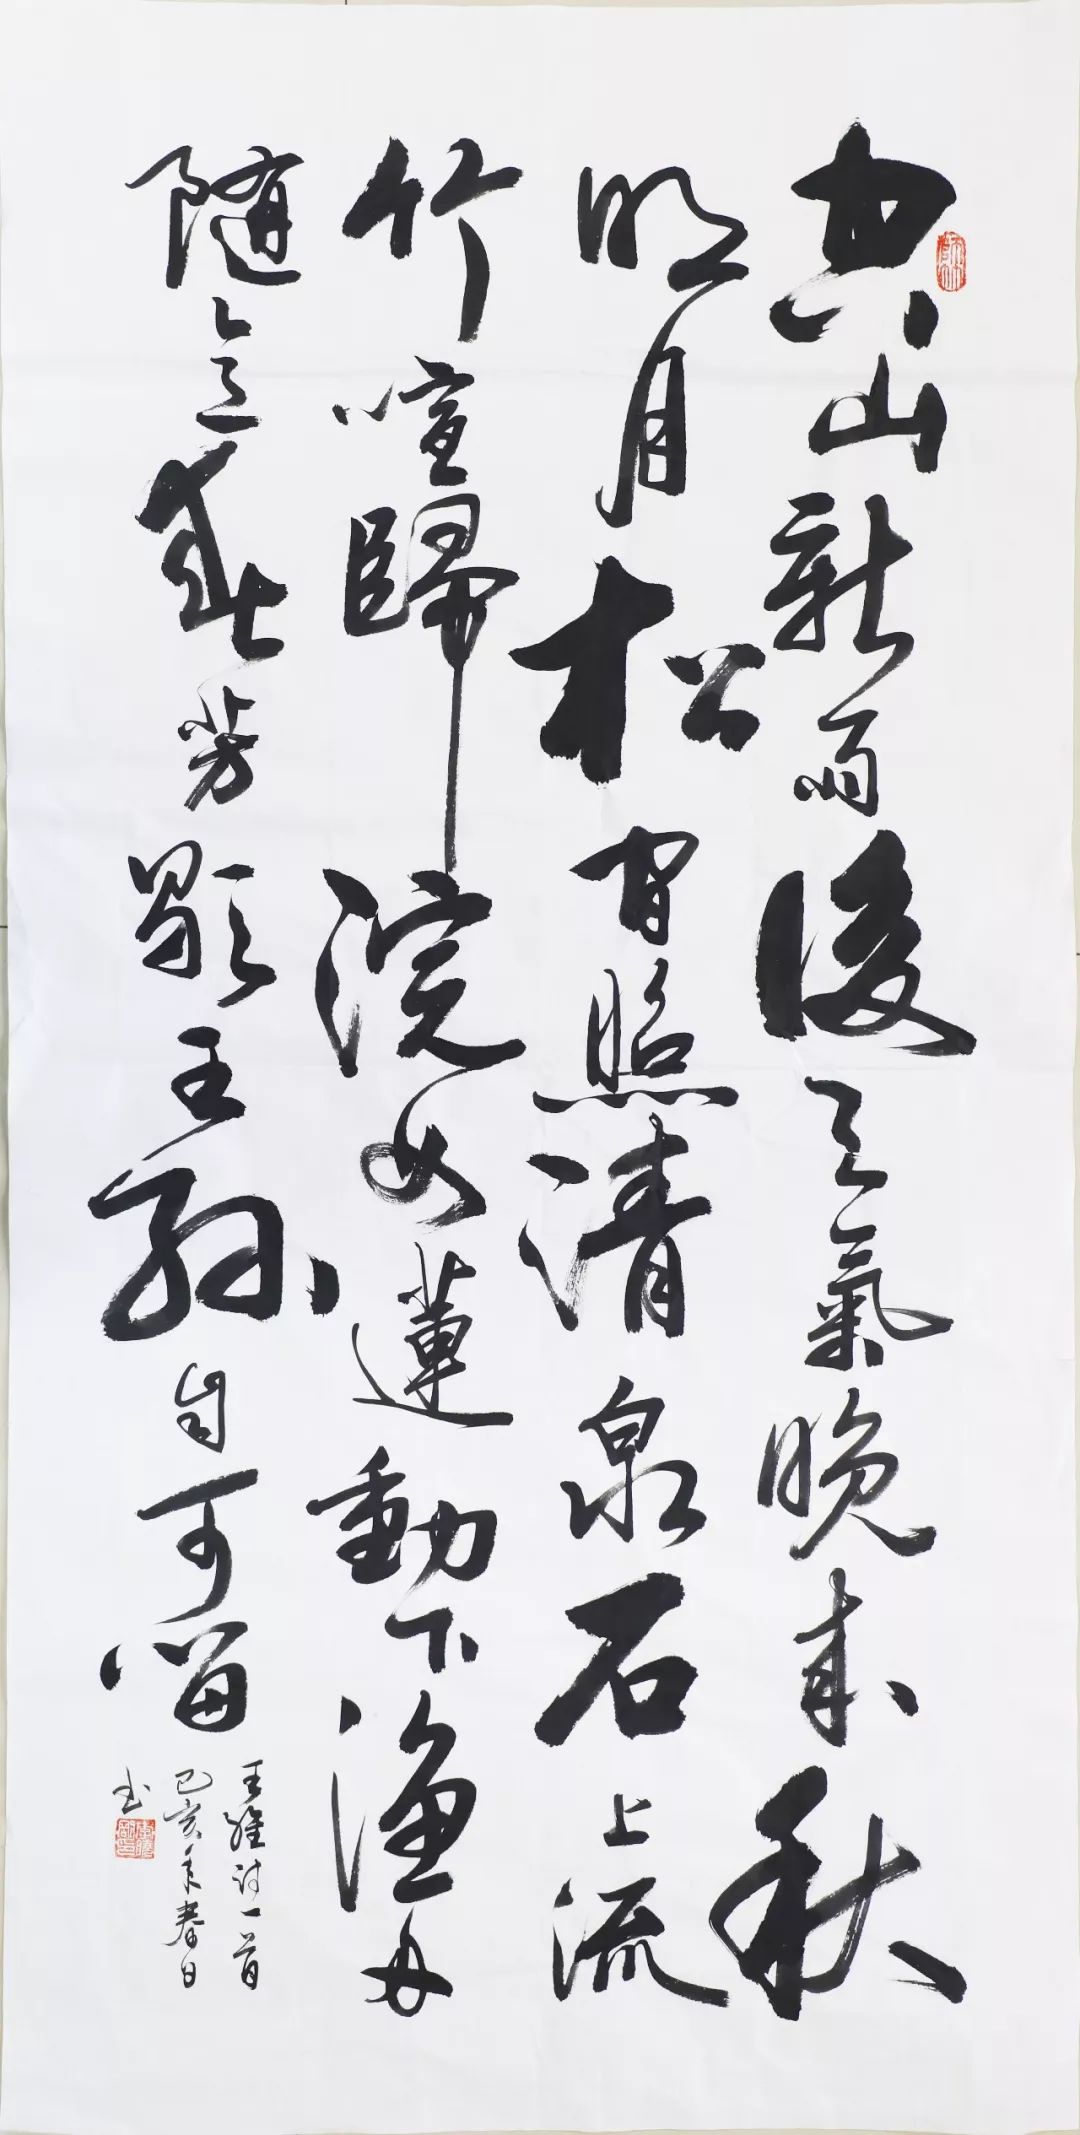 空山新雨後天氣晚来秋
明月松間照清泉石上流
竹喧歸浣女蓮動下漁舟
随意春芳歇王孫自可留
王維詩一首
己亥年春日
书